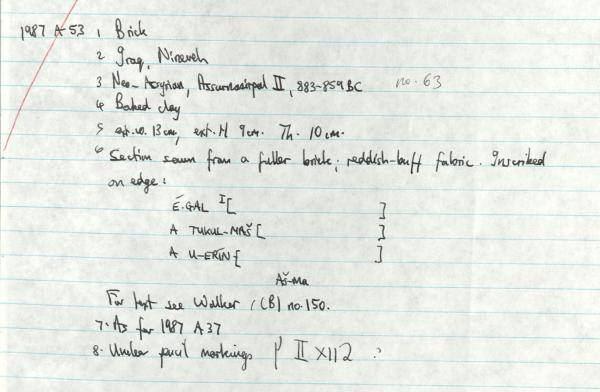 1987 A 53 1 Brick
2 Iraq, Nineveh
3 Neo-Assyrian, Assurnasirpal II, 883-859 BC no. 63
4 Baked clay
5 ext. w. 13 cm, ext. H 9 cm. Th. 10 cm.
6 Section sawn from a fuller brick; reddish-buff fabric. Inscribed
on edge:
É.GAL I[ ]
A TUKUL-MAŠ[ ]
A U-ERÍN[ ]
Aš-Ma
For text see Walker, (CBI) no. 150.
7. As for 1987 A 37
8. Unclear pencil markings II X112